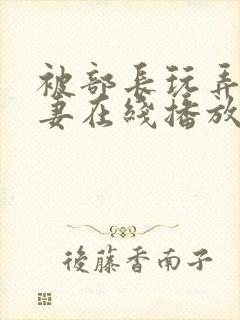 被部長玩弄
妻在綫播放
後藤香南子